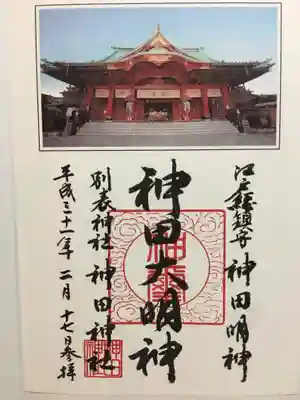 江戸総鎮守 神田明神
神田大明神
別表神社 神田神社
平成三十一年 二月 十七日参拝